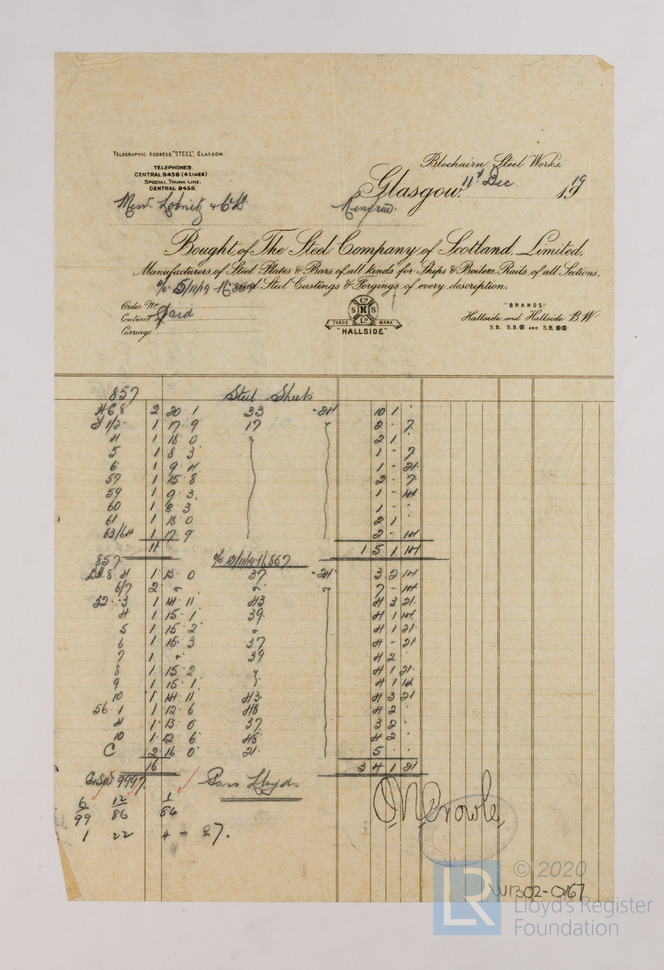 Telegraphic Address "Steel", Glasgow.
Telephones
Central 9456 (4 Lines)
Special Trunk Line.
Central 9435.
Blochairn Steel Works
Glasgow, 11th Dec 1919
Messrs Lobnitz & Co Ld Renfrew.
Bought of The Steel Company of Scotland, Limited,
Manufacturers of Steel Plates & Bars of all kinds for Ships & Boilers, Rails of all Sections,
and Steel Castings & Forgings of every description.
Order No
Contract
Carriage
S H S
Co
Ld
TRADE MARK
"HALLSIDE"
"BRANDS"
Hallside and Hallside B.W.
857 Steel Sheets
4 18 0 2 1
5 1 8 3 1 - 7
6 1 9 4 1 - 21
57 1 15 8 2 - 7
59 1 9 3 1 - 14
60 1 8 3 1 -
61 1 18 0 2 1
63/64 1 17 9 2 - 14
11 1 5 1 14
857
4 1 15 1 39 4 1 14
5 1 15 2 4 1 21
6 1 15 3 37 4 - 21
7 1 39 4 2
8 1 15 2 4 1 21
9 1 15 1 4 1 14
10 1 14 11 43 4 3 21
56 1 1 12 6 48 4 2
4 1 13 0 37 3 2
10 1 12 6 48 4 2
C 2 16 0 21 5
16 3 4 1 21
9997 Pass Lloyds
6/99 12/86 1/84
1 22 4 - 27.
W1302-0167
© 2020
LR
Lloyd's Register
Foundation